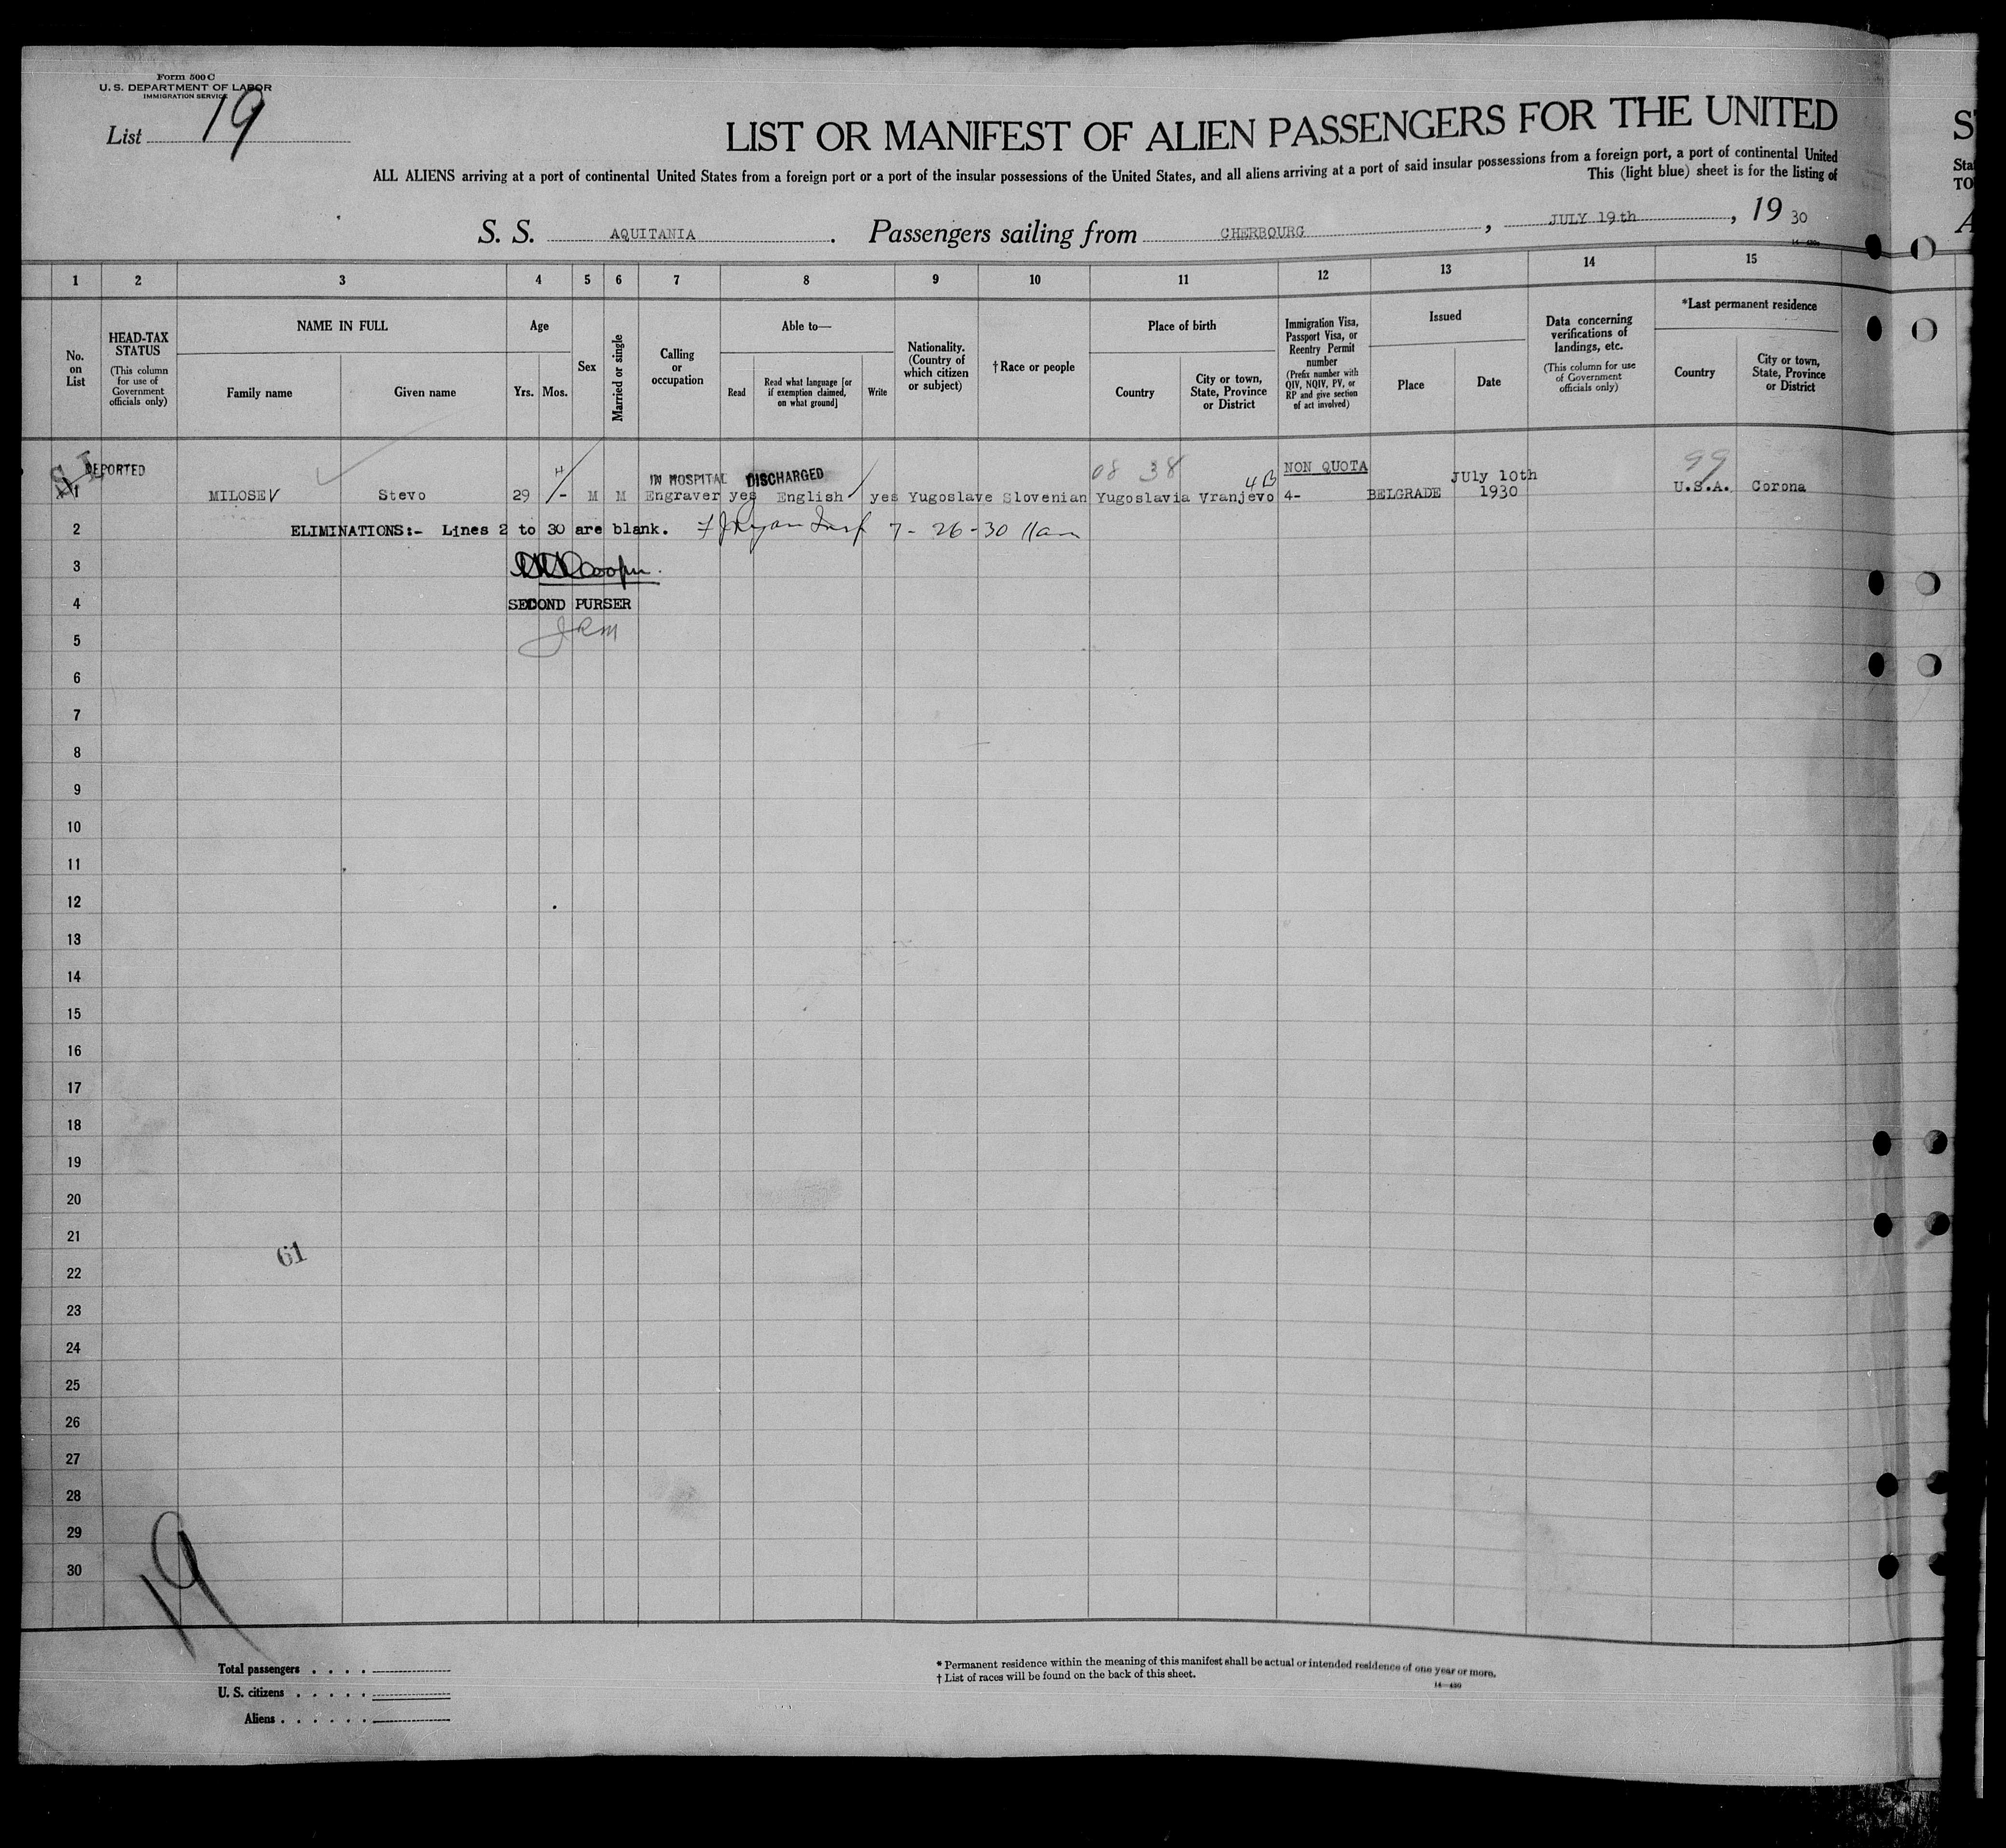 Form 500 C
U. S. DEPARTMENT OF LABOR
IMMIGRATION SERVICE
List 19
LIST OR MANIFEST OF ALIEN PASSENGERS FOR THE UNITED
ALL ALIENS arriving at a port of continental United States from a foreign port or a port of the insular possessions of the United States, and all aliens arriving at a port of said insular possessions from a foreign port, a port of continental United
This (light blue) sheet is for the listing of
S. S. AQUITANIA. Passengers sailing from CHERBOURG, JULY 19th, 19 30
1 2 3 4 5 6 7 8 9 10 11 12 13 14 15
No. on List
HEAD-TAX STATUS
(This column for use of Government officials only)
NAME IN FULL
Family name
Given name
Age
Yrs. Mos.
Sex
Married or single
Calling or occupation
Able to—
Read
Read what language [or if exemption claimed, on what ground]
Write
Nationality. (Country of which citizen or subject)
†Race or people
Place of birth
Country
City or town, State, Province or District
Immigration Visa, Passport Visa, or Reentry Permit number
(Prefix number with QIV, NQIV, PV, or RP and give section of act involved)
Issued
Place
Date
Data concerning verifications of landings, etc.
(This column for use of Government officials only)
*Last permanent residence
Country
City or town, State, Province or District
S.I. DEPORTED
IN HOSPITAL DISCHARGED 08 38 4B NON QUOTA July 10th 99
1 MILOSEV Stevo 29 - M M Engraver yes English yes Yugoslave Slovenian Yugoslavia Vranjevo 4- BELGRADE 1930 U.S.A. Corona
2 ELIMINATIONS:- Lines 2 to 30 are blank. Ryan Insp 7-26-30 11am
3 Cooper.
4 SECOND PURSER
5
6
7
8
9
10
11
12
13
14
15
16
17
18
19
20
21
61
22
23
24
25
26
27
28
29
30
19
Total passengers
U. S. citizens
Aliens
* Permanent residence within the meaning of this manifest shall be actual or intended residence of one year or more.
† List of races will be found on the back of this sheet.
14—430